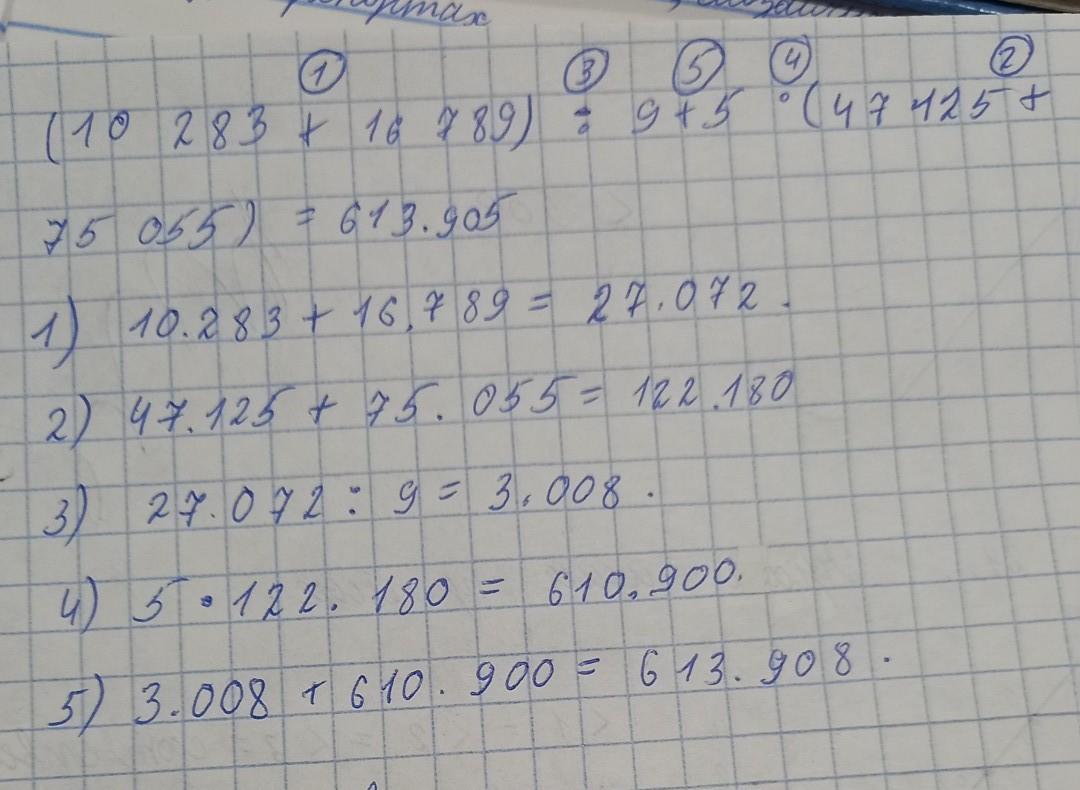 ① ③ ⑤ ④ ②
(10 283 + 16 789) : 9 + 5 · (47 125 +
75 055) = 613.905
1) 10.283 + 16.789 = 27.072.
2) 47.125 + 75.055 = 122.180
3) 27.072 : 9 = 3.008.
4) 5 · 122.180 = 610.900.
5) 3.008 + 610.900 = 613.908.